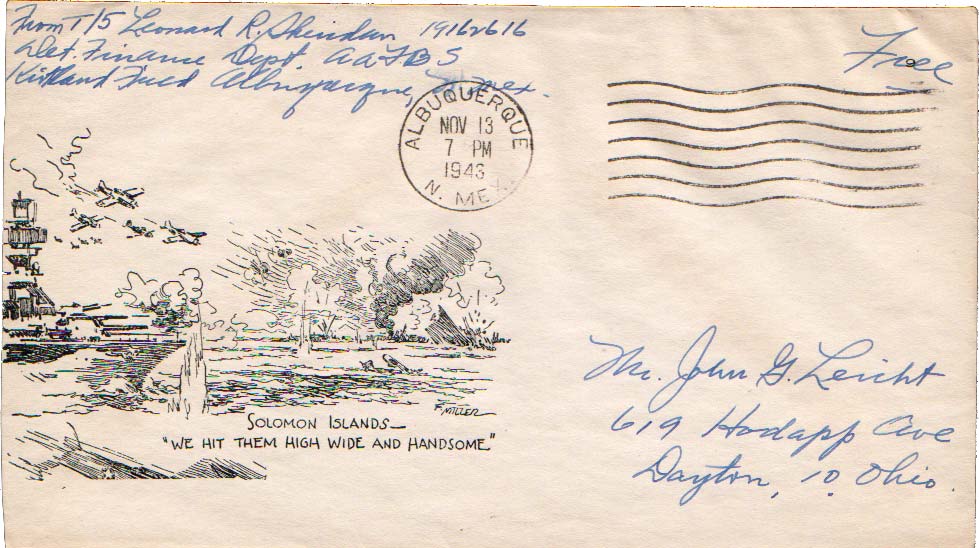 From T/5 Leonard R. Sheridan 19162616
Det. Finance Dept. AAFBS
Kirtland Field Albuquerque, N. Mex.
Free
ALBUQUERQUE
NOV 13
7 PM
1943
N. MEX.
F. MILLER
SOLOMON ISLANDS—
"WE HIT THEM HIGH WIDE AND HANDSOME"
Mr. John G. Leicht
619 Hodapp Ave
Dayton, 10, Ohio.